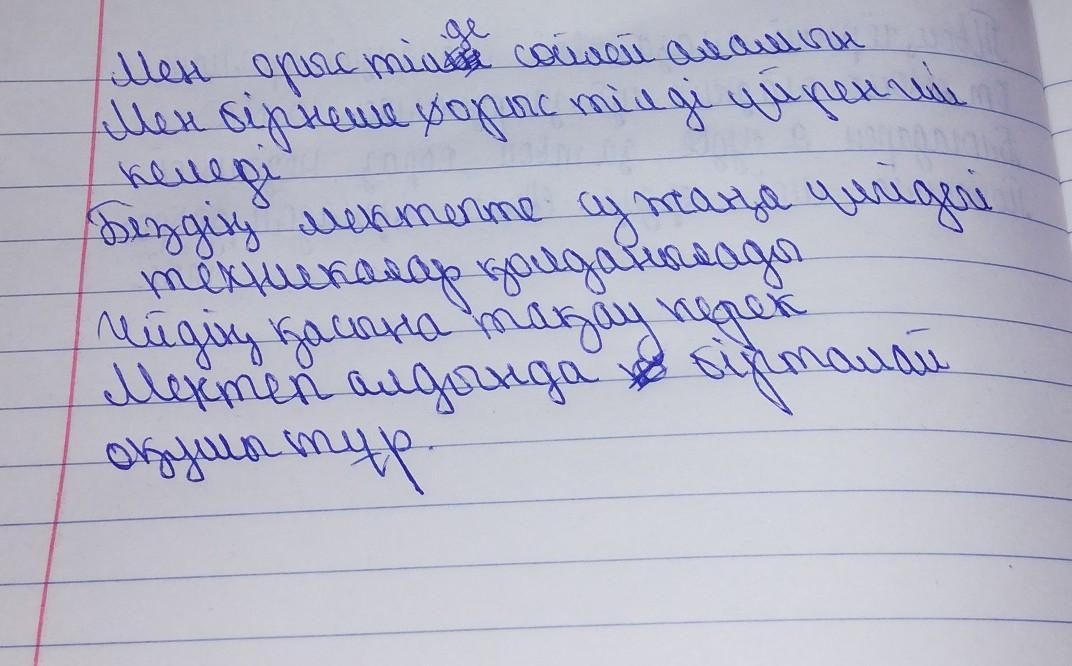 Мен орыс тілде сөйлей аламын
Мен бірнеше орыс тілді үйренгім
келеді
Біздің мектепте су жаңа үлгідегі
техникалар қолданылады
Үйдің қасына тақау керек
Мектеп алдында бірталай
оқушы тұр.